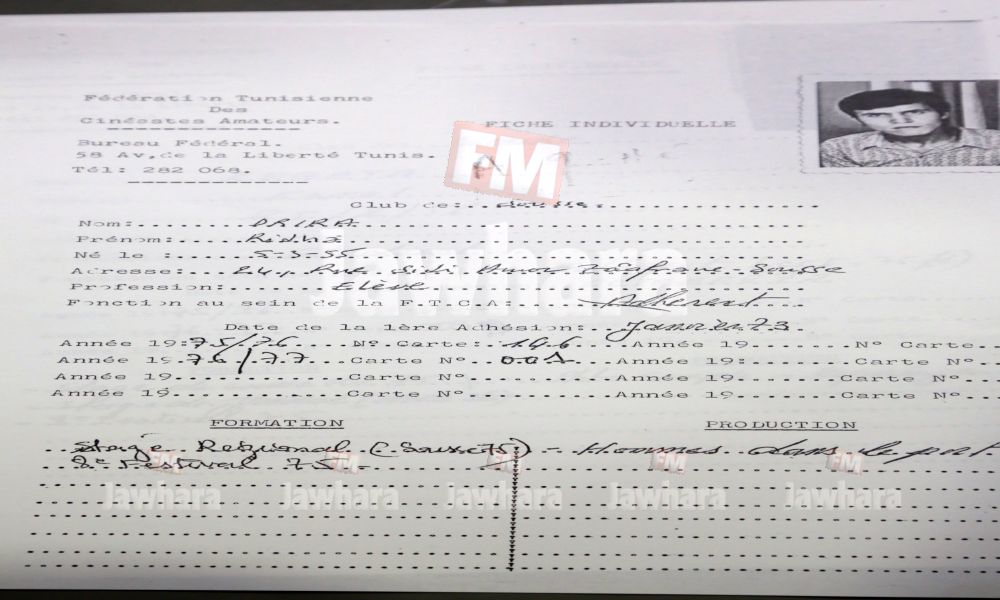 Fédération Tunisienne
Des
Cinéastes Amateurs.
Bureau Fédéral.
58 Av,de la Liberté Tunis.
Tél: 282 068.
FICHE INDIVIDUELLE
FM
Club de:..Sousse
Nom: DRIRA
Prénom: Ridha
Né le : 5-3-55
Adresse: 24, Rue Sidi Sousse
Profession: Elève
Fonction au sein de la F.T.C.A: Adhérent
Date de la 1ère Adhésion: Janvier 73
Année 19:75/76 N° Carte: 196 Année 19 N° Carte
Année 19.76/77 Carte N° 001 Année 19: Carte N°
Année 19 Carte N° Année 19 Carte N°
Année 19 Carte N° Année 19 Carte N°
Jawhara
FORMATION PRODUCTION
Stage Régional (Sousse 75) - Hommes dans le port.
2° Festival 75 -
FM FM FM FM
Jawhara Jawhara Jawhara Jawhara Jawhara